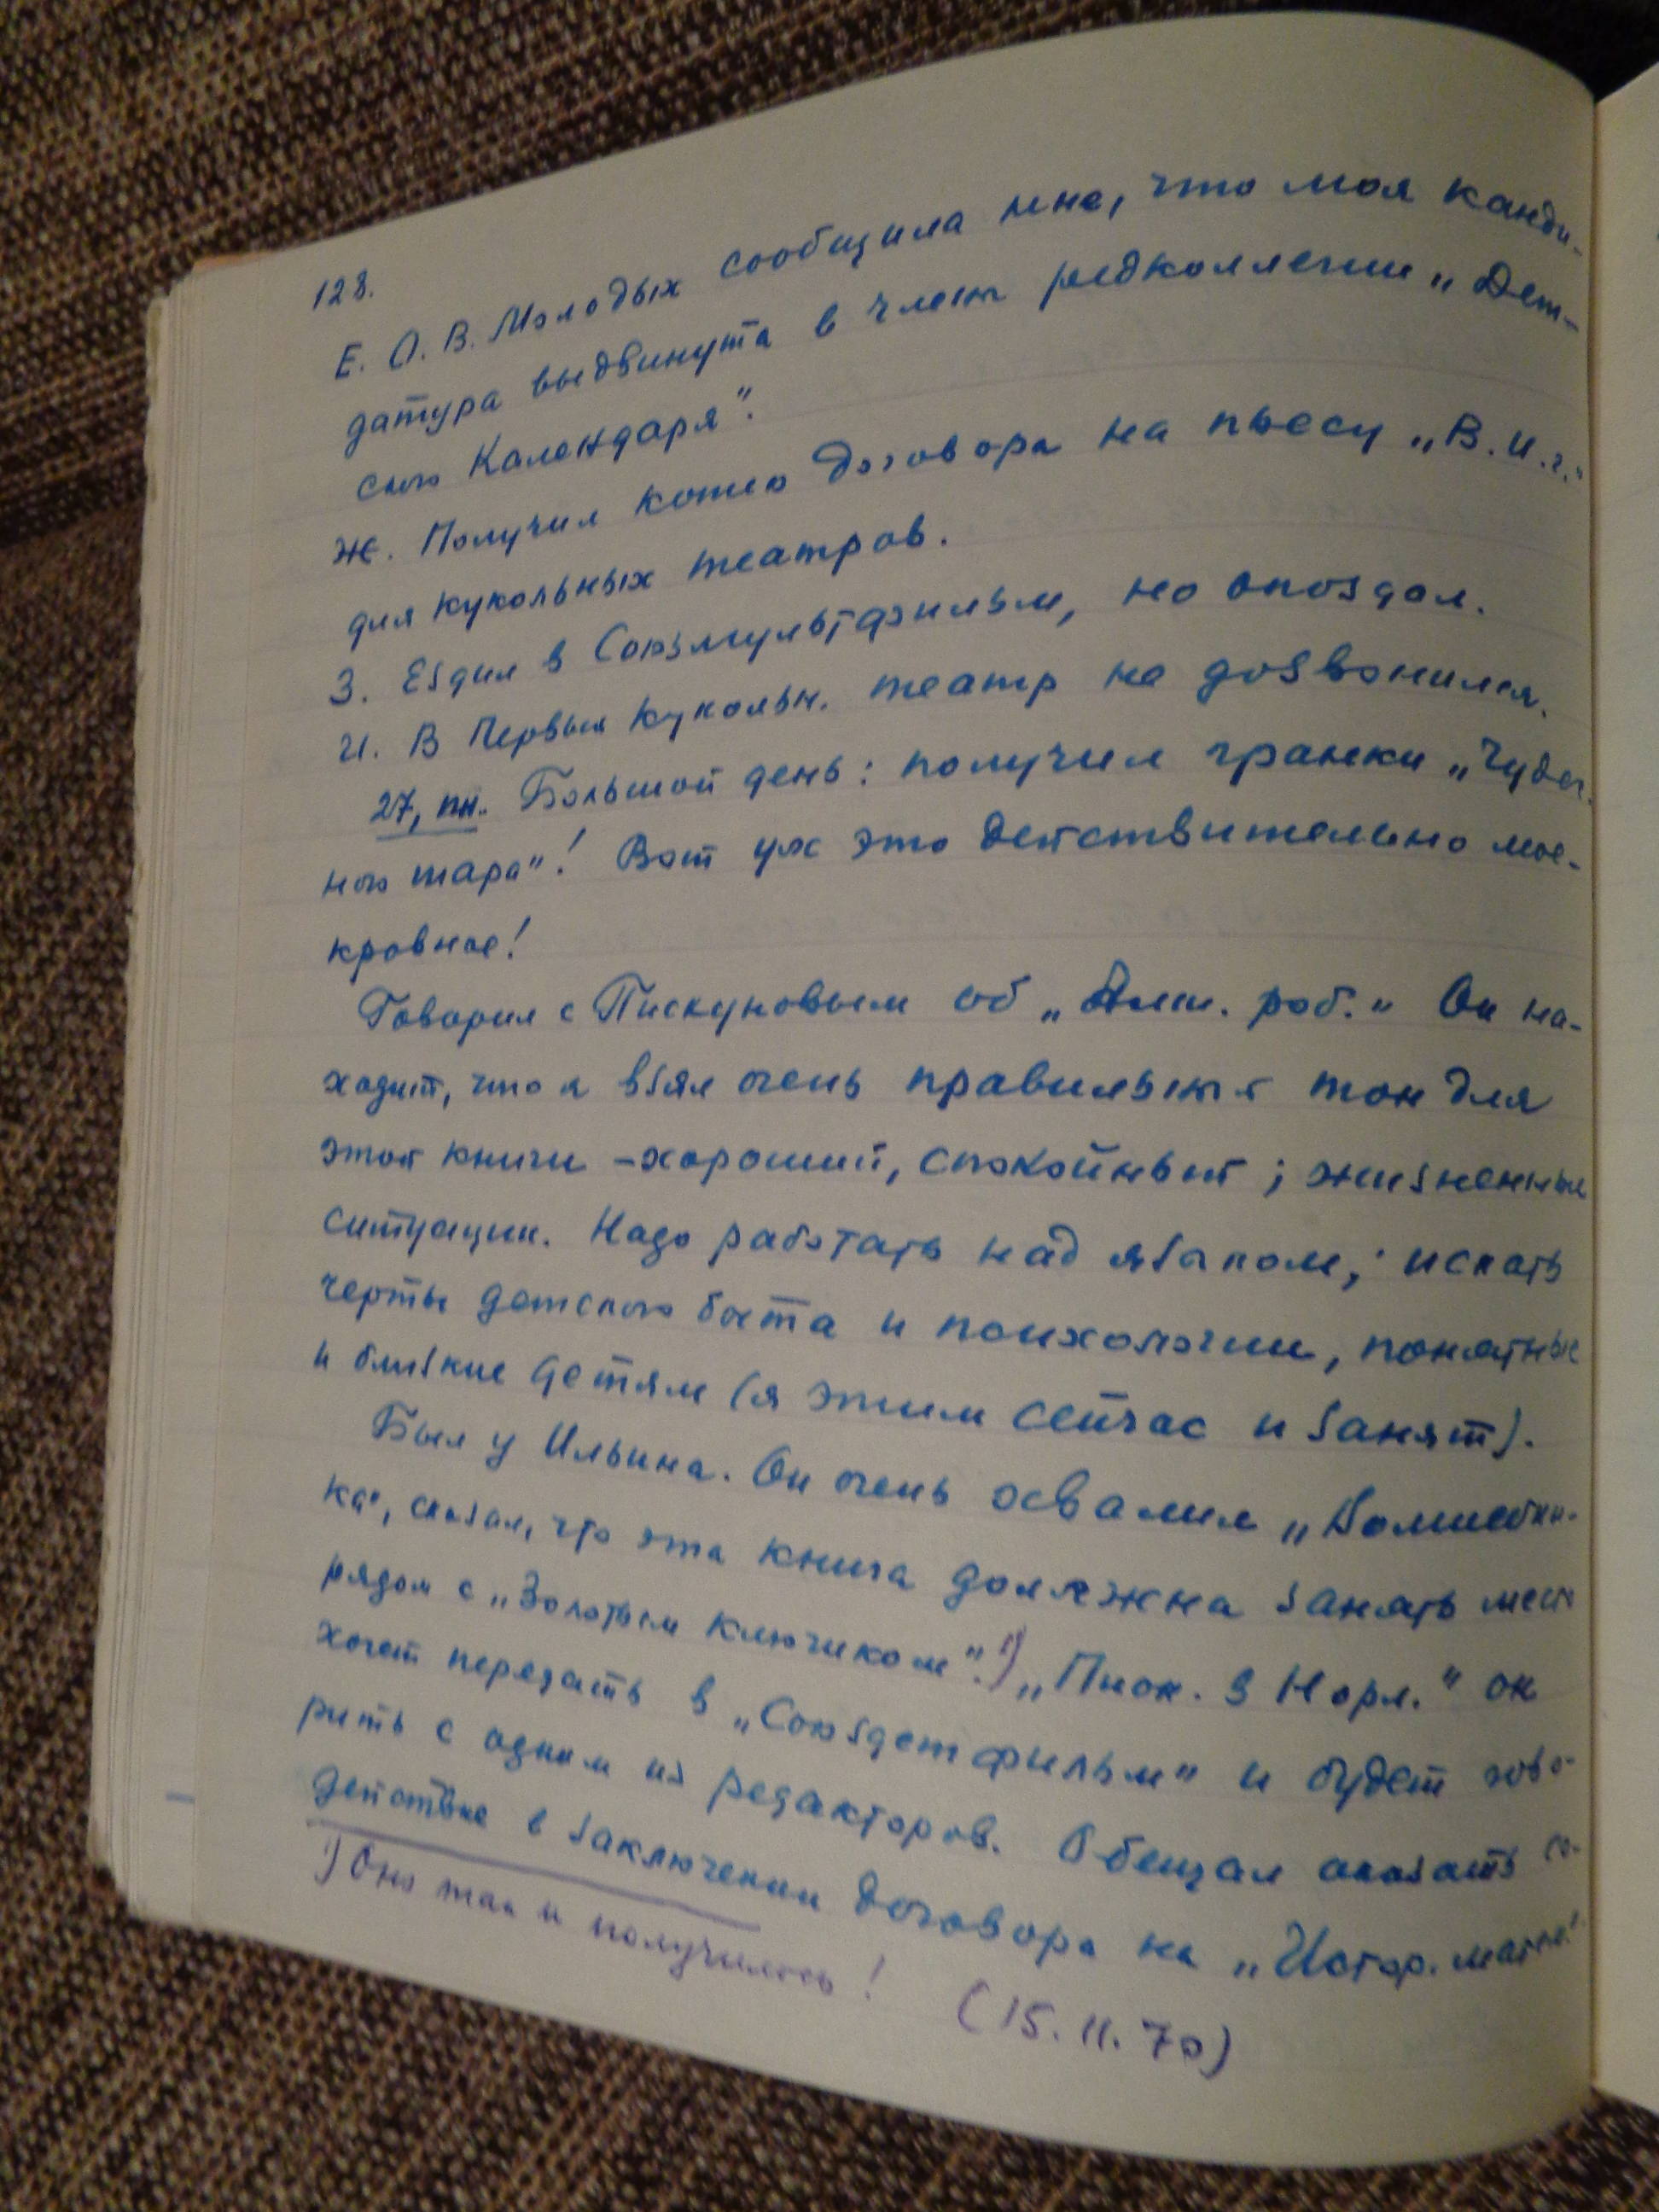 128.
Е. О. В. Молодых сообщила мне, что моя канди-
датура выдвинута в члены редколлегии „Дет-
ского Календаря".
Ж. Получил копию договора на пьесу „В. И. г."
для кукольных театров.
З. Ездил в Союзмультфильм, но опоздал.
И. В Первый кукольн. театр не дозвонился.
27, пн. Большой день: получил гранки „Чудес-
ного шара"! Вот уж это действительно мое-
кровное!
Говорил с Пискуновым об „Алт. роб." Он на-
ходит, что я взял очень правильный тон для
этой книги – хороший, спокойный; жизненные
ситуации. Надо работать над языком; искать
черты детского быта и психологии, понятные
и близкие детям (я этим сейчас и занят).
Был у Ильина. Он очень хвалил „Волшебни-
ка", сказал, что эта книга должна занять место
рядом с „Золотым ключиком".¹) „Пион. в Норл." он
хочет передать в „Союздетфильм" и будет гово-
рить с одним из редакторов. Обещал оказать со-
действие в заключении договора на „Истор. матем."
¹) Оно так и получилось! (15.11.70)